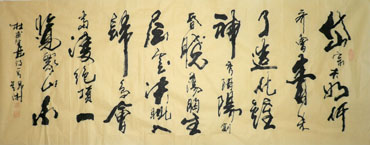 岱宗夫如何
齊魯青未
了造化鍾
神秀陰陽割
昏曉蕩胸生
層雲決眥入
歸鳥會
當凌絕頂一
覽眾山小
杜甫